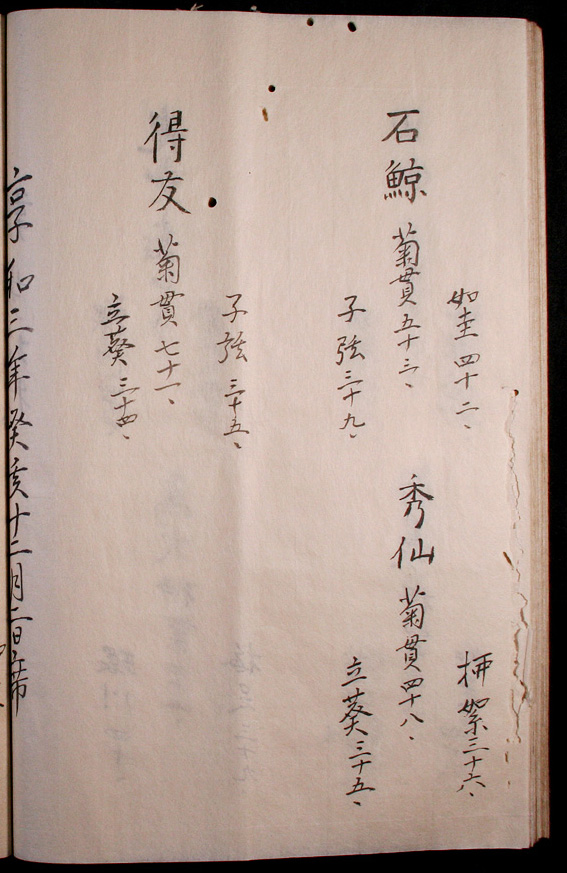 如圭 四十二、
石鯨 菊貫 五十三、
子弦 三十九、
柳絮 三十六、
秀仙 菊貫 四十八、
立葵 三十五、
子弦 三十五、
得友 菊貫 七十一、
立葵 三十四、
享和三年癸亥十二月二日席